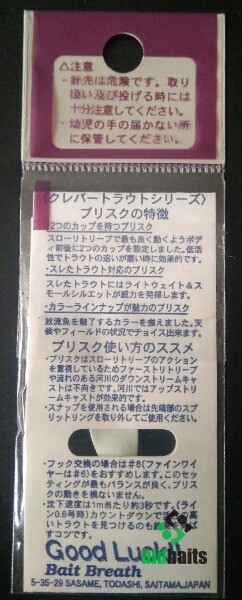 ⚠注意
・針先は危険です。取り
扱い及び投げる時には
十分注意してください。
・幼児の手の届かない所
に保管してください。
〈クレバートラウトシリーズ〉
ブリスクの特徴
・2つのカップを持つブリスク
スローリトリーブで最も良く動くようボデ
ィ前後に2つのカップを設定しました。低活
性でトラウトの追いが悪い時に効果的です。
・スレたトラウト対応のブリスク
スレたトラウトにはライトウェイト&ス
モールシルエットが威力を発揮します。
・カラーラインナップが魅力のブリスク
放流魚を魅了するカラーを揃えました。天
候やフィールドの状況でチョイス出来ます。
ブリスク使い方のススメ
・ブリスクはスローリトリーブのアクション
を重視しているためファーストリトリーブ
や流れのある河川のダウンストリームキャ
ストは不向きです。河川ではアップスト
リームキャストが効果的です。
・スナップを使用される場合は先端部のスプ
リットリングを取り外してご使用ください。
・フック交換の場合は#8(ファインワイ
ヤーは#6)をおすすめします。このセッ
ティングが最もバランスが良く、ブリス
クの動きを損ないません。
・沈下速度は1m当たり約3秒です。(ライ
ン0.6号時)カウントダウンで
トラウトを見つけるのも
ばすコツです。
Good Luck
oldbaits
Bait Breath
5-35-29 SASAME, TODASHI, SAITAMA,JAPAN